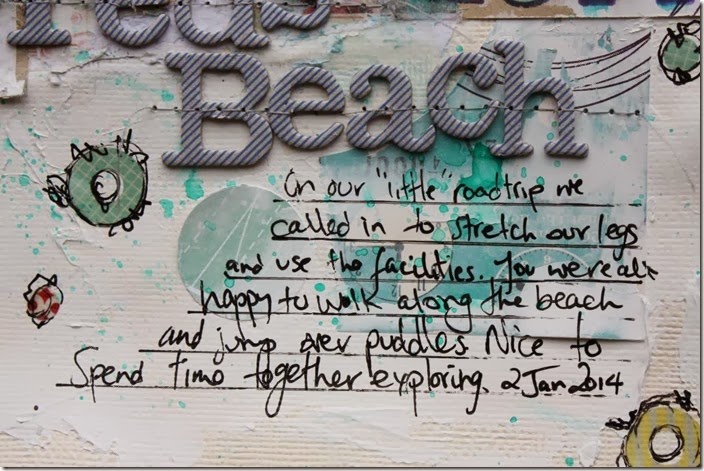 Beach
On our "little" roadtrip we
called in to stretch our legs
and use the facilities. You were all
happy to walk along the beach
and jump over puddles. Nice to
Spend time together exploring. 2 Jan 2014